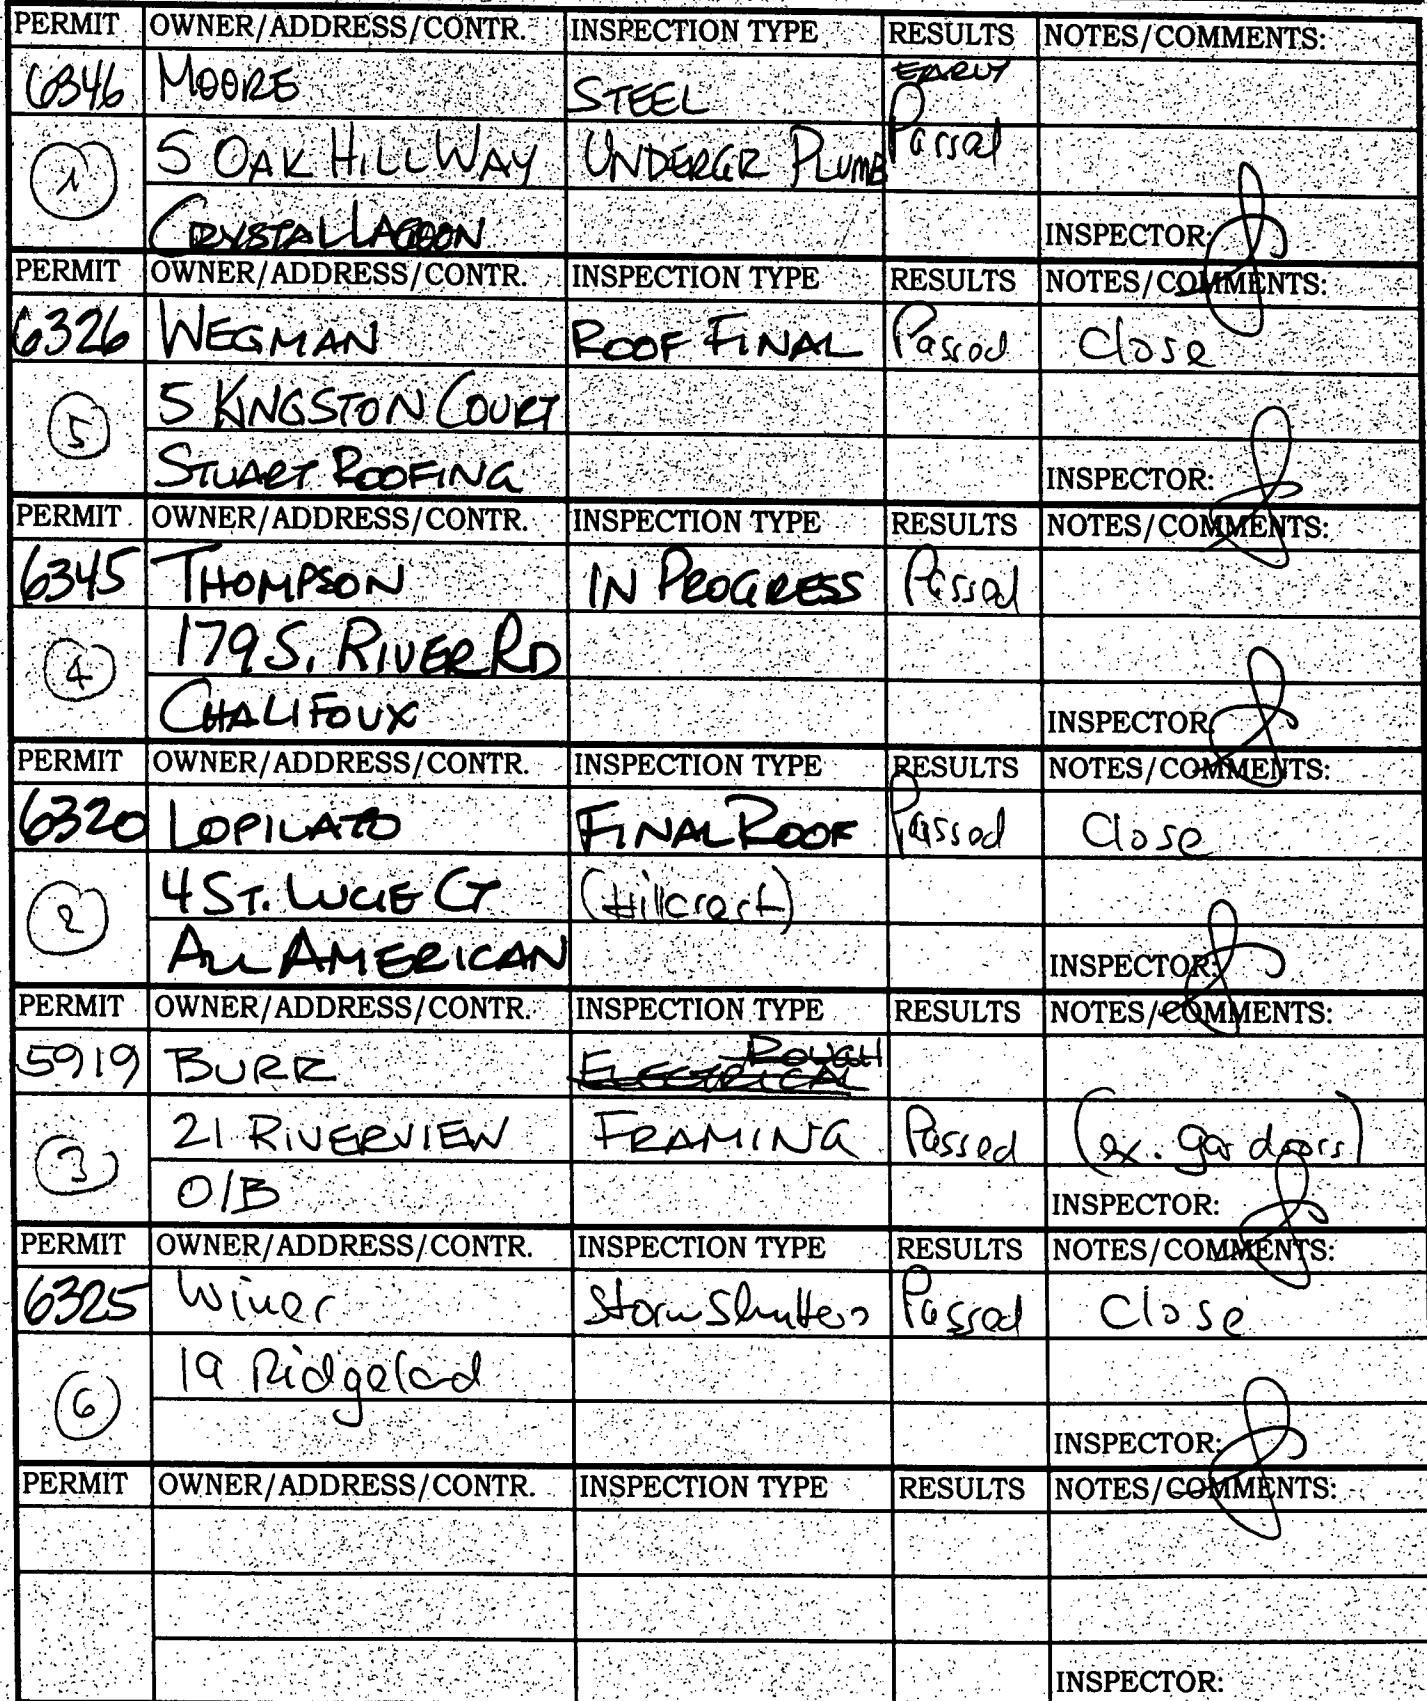 PERMIT OWNER/ADDRESS/CONTR. INSPECTION TYPE RESULTS NOTES/COMMENTS:
6346 MOORE STEEL EARLY
1 5 OAK HILL WAY UNDERGR PLUMB Passed
CRYSTAL LAGOON INSPECTOR:
PERMIT OWNER/ADDRESS/CONTR. INSPECTION TYPE RESULTS NOTES/COMMENTS:
6326 WEGMAN ROOF FINAL Passed Close
5 5 KINGSTON COURT
STUART ROOFING INSPECTOR:
PERMIT OWNER/ADDRESS/CONTR. INSPECTION TYPE RESULTS NOTES/COMMENTS:
6345 THOMPSON IN PROGRESS Passed
4 179 S. RIVER RD
CHALIFOUX INSPECTOR:
PERMIT OWNER/ADDRESS/CONTR. INSPECTION TYPE RESULTS NOTES/COMMENTS:
6320 LOPILATO FINAL ROOF Passed Close
2 4 ST. LUCIE CT (Hillcrest)
ALL AMERICAN INSPECTOR:
PERMIT OWNER/ADDRESS/CONTR. INSPECTION TYPE RESULTS NOTES/COMMENTS:
5919 BURR ROUGH ELECTRICAL
3 21 RIVERVIEW FRAMING Passed (ex. gar doors)
O/B INSPECTOR:
PERMIT OWNER/ADDRESS/CONTR. INSPECTION TYPE RESULTS NOTES/COMMENTS:
6325 Winer Storm Shutters Passed Close
6 19 Ridgeland
INSPECTOR:
PERMIT OWNER/ADDRESS/CONTR. INSPECTION TYPE RESULTS NOTES/COMMENTS:
INSPECTOR: